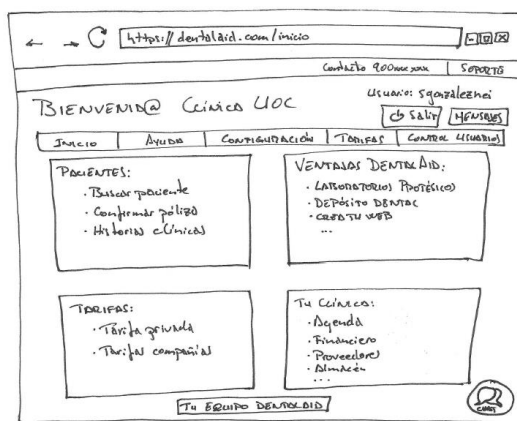 https://dentalaid.com/inicio
Contacto 900xxxxxx SOPORTE
BIENVENID@ CLÍNICA UOC
Usuario: sgonzaleznei
Salir MENSAJES
INICIO AYUDA CONFIGURACIÓN TARIFAS CONTROL USUARIOS
PACIENTES:
· Buscar paciente
· Confirmar póliza
· Historias clínicas
VENTAJAS DENTALAID:
· LABORATORIOS PROTÉSICOS
· DEPÓSITO DENTAL
· CREA TU WEB
...
TARIFAS:
· Tarifa privada
· Tarifas compañías
TU CLÍNICA:
· Agenda
· Financiero
· Proveedores
· Almacén
...
TU EQUIPO DENTALAID
CHAT